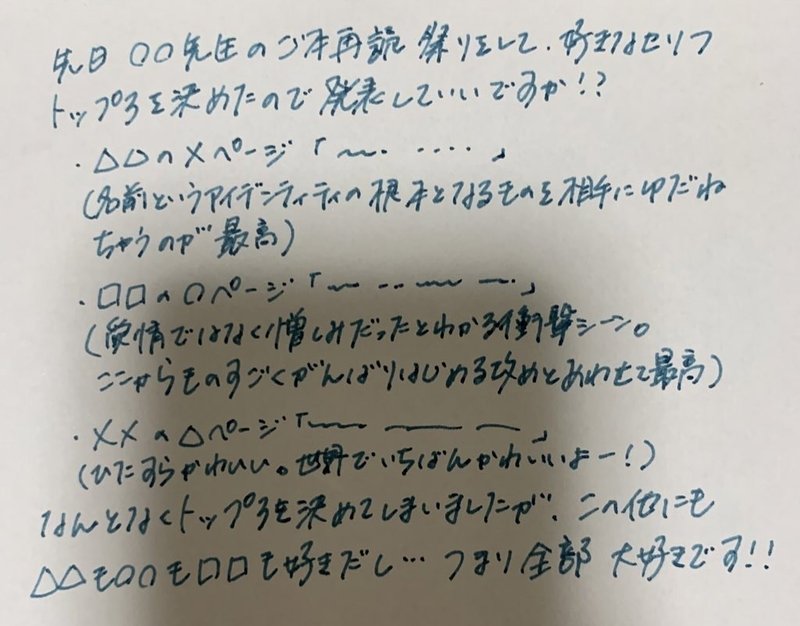 先日 〇〇先生のご本再読祭りをして、好きなセリフ
トップ3を決めたので発表していいですか!?
・△△の×ページ「〜〜. ・・・・」
(名前というアイデンティティの根本となるものを相手にゆだね
ちゃうのが最高)
・□□の〇ページ「〜 -- 〜〜 〜.」
(愛情ではなく憎しみだったとわかる衝撃シーン。
ここからものすごくがんばりはじめる攻めとあわせて最高)
・××の△ページ「〜〜 ―― ―」
(ひたすらかわいい。世界でいちばんかわいいよー!)
なんとなくトップ3を決めてしまいましたが、この他にも
△△も〇〇も□□も好きだし… つまり全部 大好きです!!